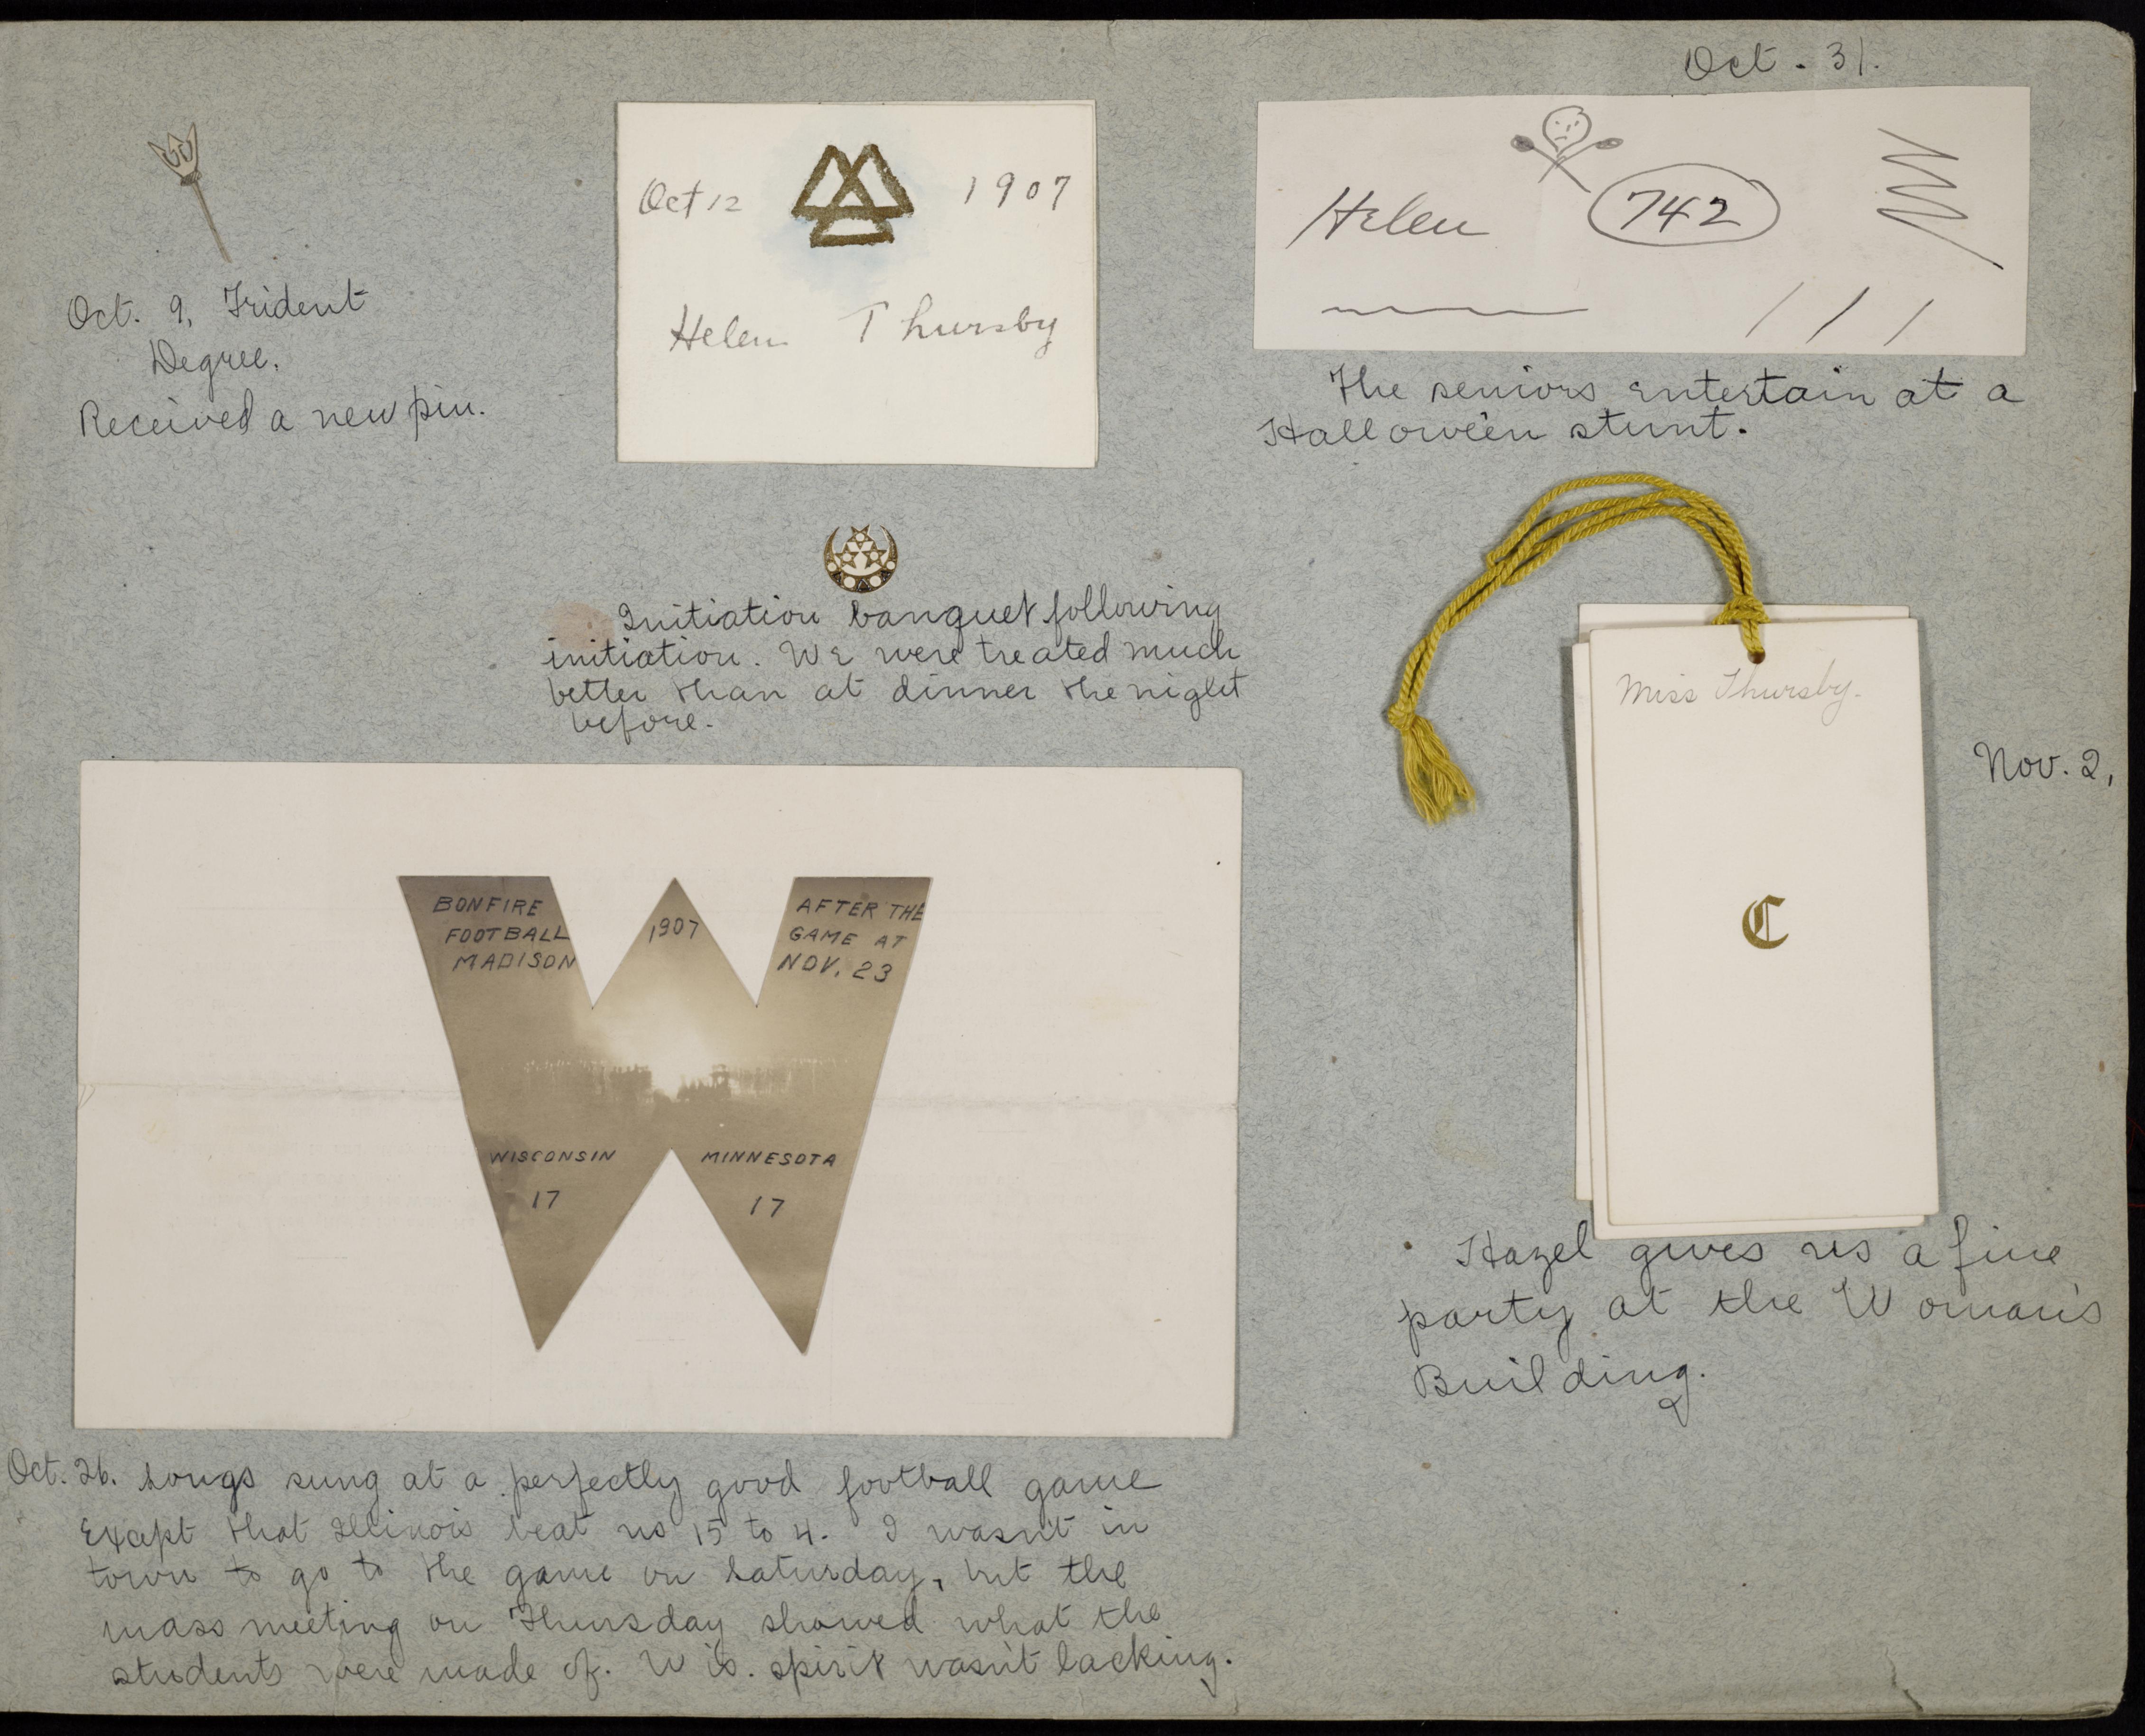 Oct. 9, Trident
Degree.
Received a new pin.
Oct 12 1907
Helen Thursby
Initiation banquet following
initiation. We were treated much
better than at dinner the night
before.
BONFIRE 1907 AFTER THE
FOOTBALL GAME AT
MADISON NOV. 23
WISCONSIN MINNESOTA
17 17
Oct. 26. Songs sung at a perfectly good football game
except that Illinois beat us 15 to 4. I wasn't in
town to go to the game on Saturday, but the
mass meeting on Thursday showed what the
students were made of. Wis. spirit wasn't lacking.
Oct. 31.
Helen 742
The seniors entertain at a
Hallowe'en stunt.
Miss Thursby.
C
Nov. 2,
Hazel gives us a fine
party at the Woman's
Building.